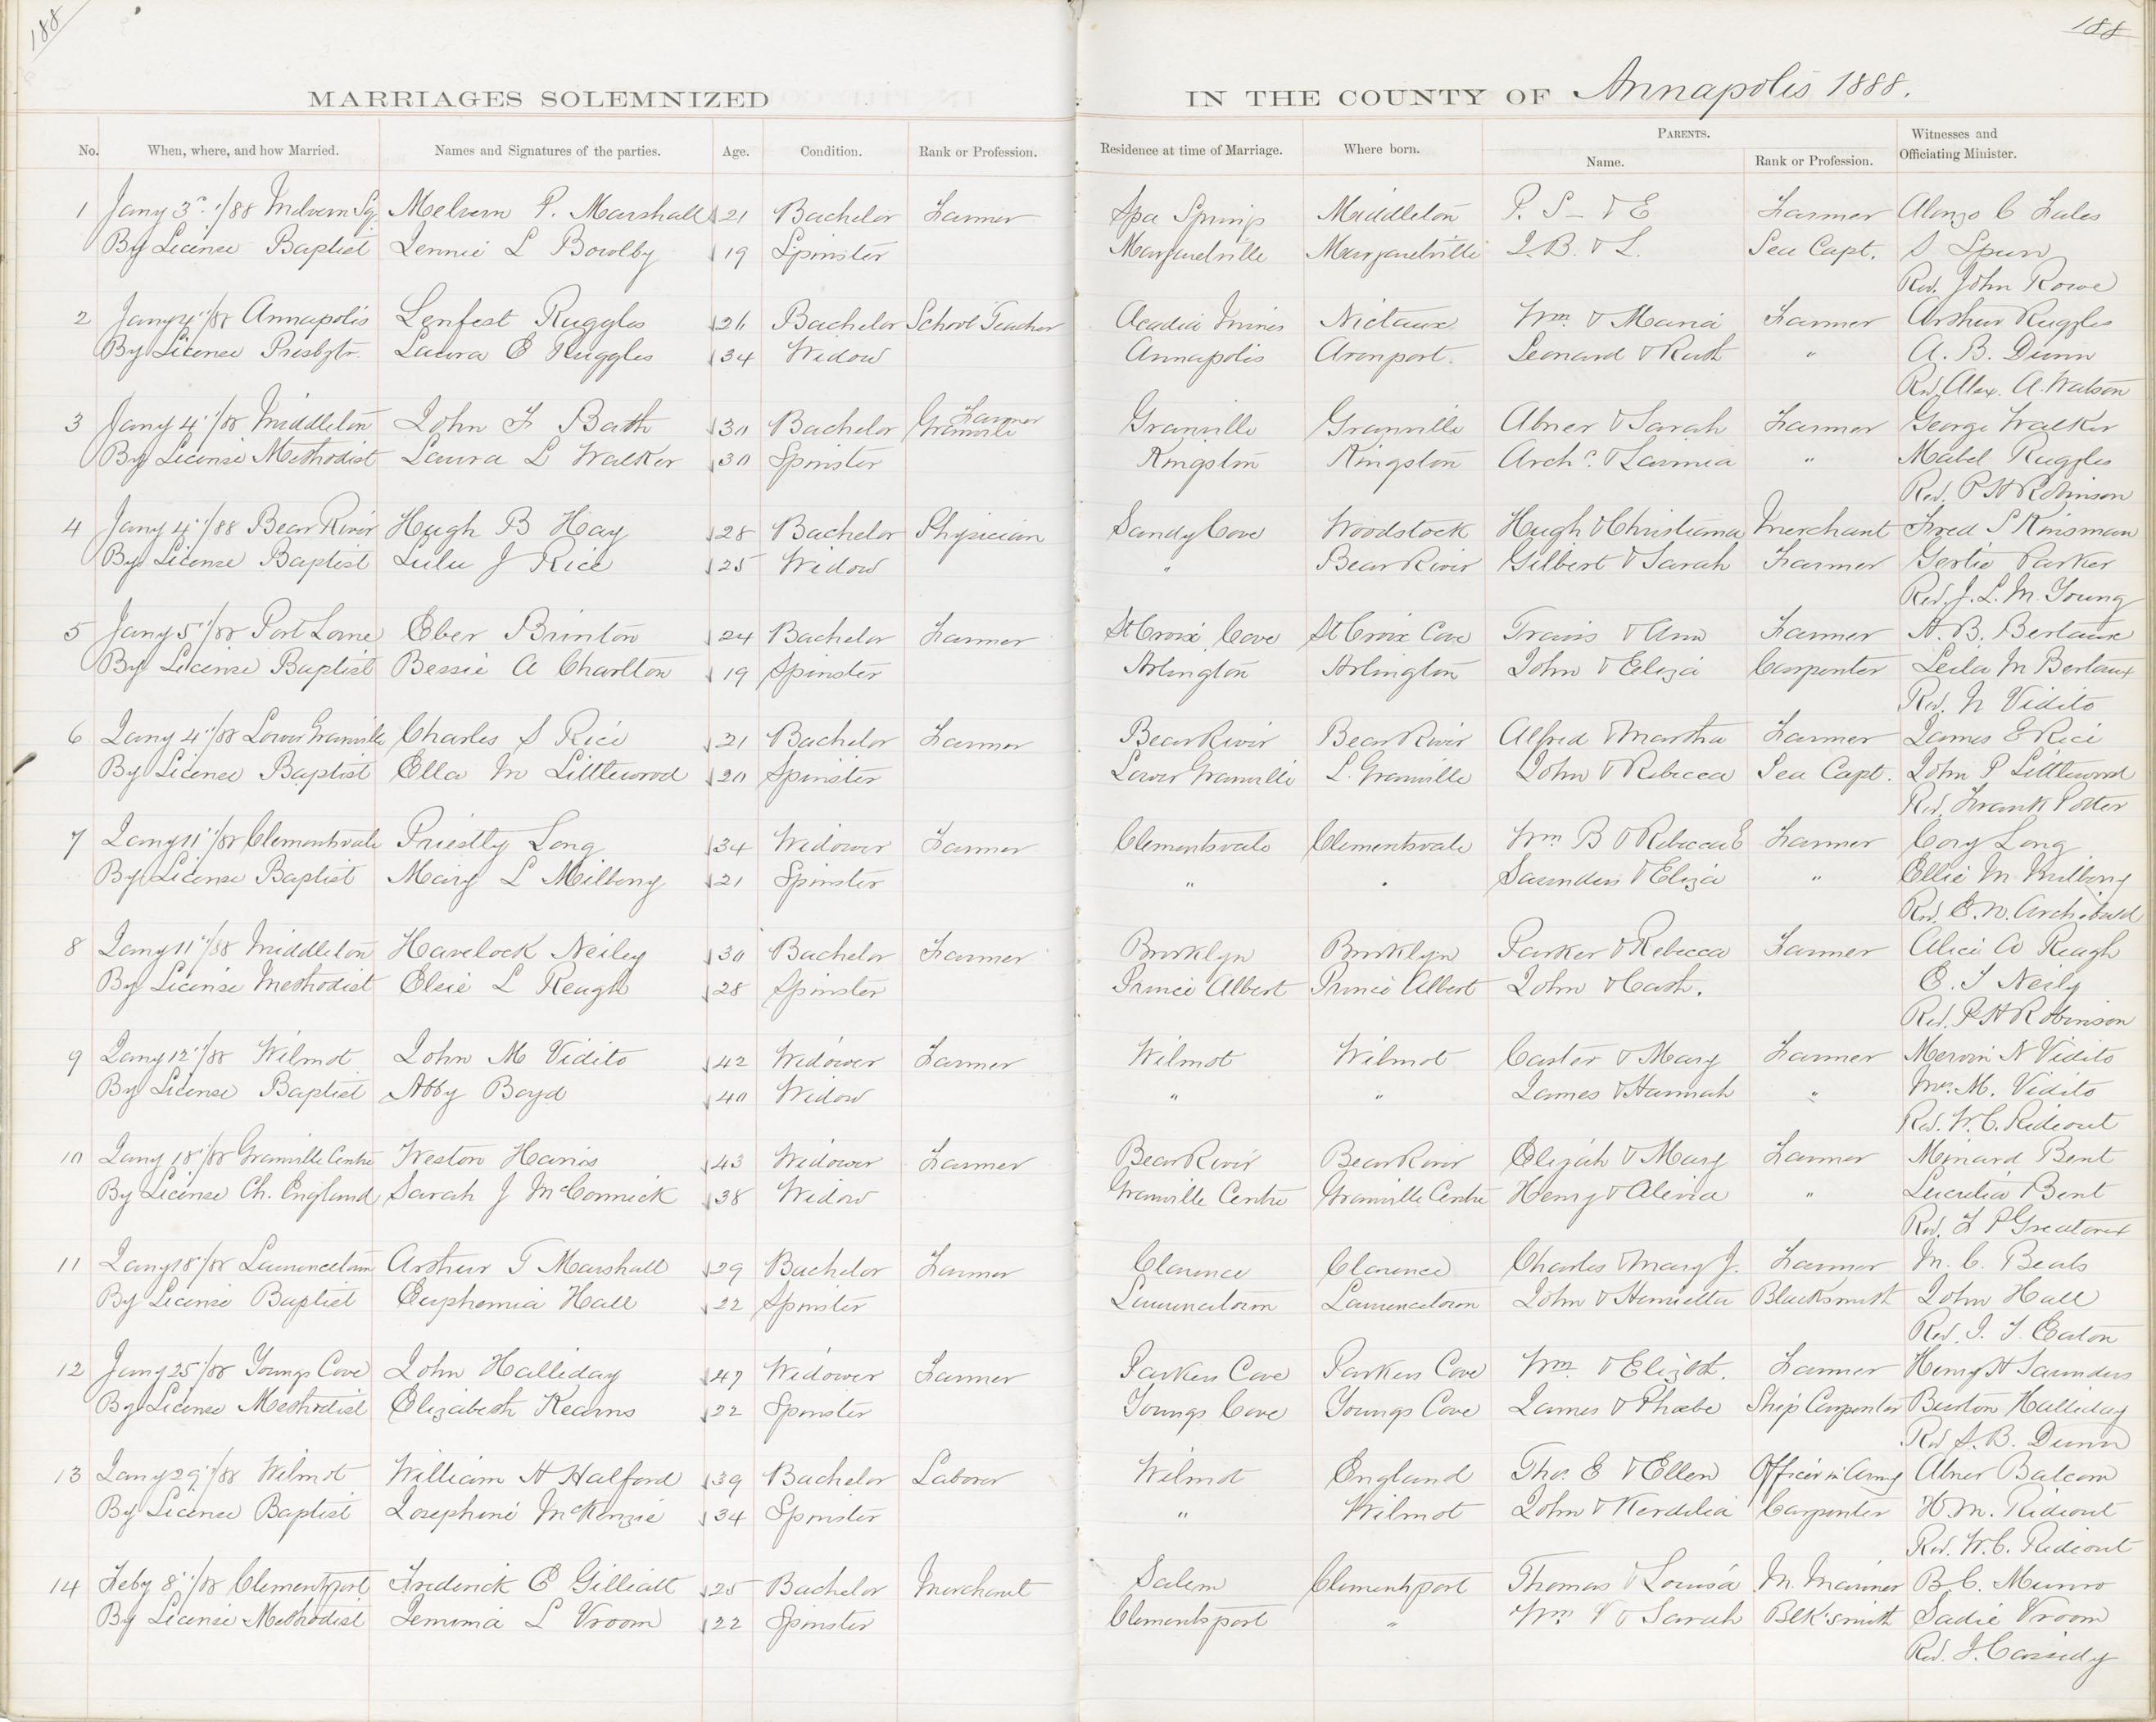 188
188
MARRIAGES SOLEMNIZED IN THE COUNTY OF Annapolis 1888.
No. When, where, and how Married. Names and Signatures of the parties. Age. Condition. Rank or Profession. Residence at time of Marriage. Where born. PARENTS. Name. Rank or Profession. Witnesses and Officiating Minister.
1 Jany 3rd /88 Melvern Sq. Melvern P. Marshall 21 Bachelor Farmer Spa Springs Middleton P. S - & E Farmer Alonzo C Fales
By License Baptist Jennie L Bowlby 19 Spinster Margaretville Margaretville J. B. & L. Sea Capt. S Spurr
Rev. John Rowe
2 Jany 4"/88 Annapolis Lenfest Ruggles 26 Bachelor School Teacher Acadia Mines Nictaux Wm & Maria Farmer Arthur Ruggles
By License Presbytr. Laura E Ruggles 34 Widow Annapolis Avonport. Leonard & Ruth " A. B. Dunn
Rev. Alex. A. Watson
3 Jany 4"/88 Middleton John F Bath 30 Bachelor Granville Farmer Granville Granville Abner & Sarah Farmer George Walker
By License Methodist Laura L Walker 30 Spinster Kingston Kingston Archd. & Lavinia " Mabel Ruggles
Rev. P H Robinson
4 Jany 4"/88 Bear River Hugh B Hay 28 Bachelor Physician Sandy Cove Woodstock Hugh & Christiana Merchant Fred S Kinsman
By License Baptist Lulu J Rice 25 Widow " Bear River Gilbert & Sarah Farmer Gertie Parker
Rev. J. L. M. Young
5 Jany 5"/88 Port Lorne Eber Brinton 24 Bachelor Farmer St Croix Cove St Croix Cove Travis & Ann Farmer A. B. Bertaux
By License Baptist Bessie A Charlton 19 Spinster Arlington Arlington John & Eliza Carpenter Leila M Bertaux
Rev. N Vidito
6 Jany 4"/88 Lower Granville Charles S Rice 21 Bachelor Farmer Bear River Bear River Alfred & Martha Farmer James E Rice
By License Baptist Ella M Littlewood 20 Spinster Lower Granville L. Granville John & Rebecca Sea Capt. John P Littlewood
Rev. Frank Potter
7 Jany 11"/88 Clementsvale Priestly Long 34 Widower Farmer Clementsvale Clementsvale Wm B & Rebecca E Farmer Cory Long
By License Baptist Mary L Milbury 21 Spinster " " Saunders & Eliza " Ellie M Milbury
Rev. E. N. Archibald
8 Jany 11"/88 Middleton Havelock Neiley 30 Bachelor Farmer Brooklyn Brooklyn Parker & Rebecca Farmer Alice A Reagh
By License Methodist Elsie L Reagh 28 Spinster Prince Albert Prince Albert John & Cath. E. J Neily
Rev. P H Robinson
9 Jany 12"/88 Wilmot John M Vidito 42 Widower Farmer Wilmot Wilmot Caster & Mary Farmer Mervin N Vidito
By License Baptist Abby Boyd 40 Widow " " James & Hannah " Mrs. M. Vidito
Rev. W. C. Rideout
10 Jany 18"/88 Granville Centre Weston Harris 43 Widower Farmer Bear River Bear River Elijah & Mary Farmer Minard Bent
By License Ch. England Sarah J McCormick 38 Widow Granville Centre Granville Centre Henry & Alivia " Lucretia Bent
Rev. F P Greatorex
11 Jany 18"/88 Lawrencetown Arthur T Marshall 29 Bachelor Farmer Clarence Clarence Charles & Mary J. Farmer M. C. Beals
By License Baptist Euphemia Hall 22 Spinster Lawrencetown Lawrencetown John & Henrietta Blacksmith John Hall
Rev. J. T. Eaton
12 Jany 25"/88 Youngs Cove John Halliday 47 Widower Farmer Parkers Cove Parkers Cove Wm. & Elizbth. Farmer Henry H Saunders
By License Methodist Elizabeth Kearns 22 Spinster Youngs Cove Youngs Cove James & Phoebe Ship Carpenter Burton Halliday
Rev A. B. Dunn
13 Jany 29"/88 Wilmot William H Halford 39 Bachelor Laborer Wilmot England Thos. E & Ellen Officer in Army Abner Balcom
By License Baptist Josephine McKenzie 34 Spinster " Wilmot John & Kerdelia Carpenter H. M. Rideout
Rev. W. C. Rideout
14 Feby 8"/88 Clementsport Frederick E Gilliatt 25 Bachelor Merchant Salem Clementsport Thomas & Louisa M. Mariner B C. Munro
By License Methodist Jemima L Vroom 22 Spinster Clementsport " Wm V & Sarah Blk'smith Sadie Vroom
Rev. J. Cassidy